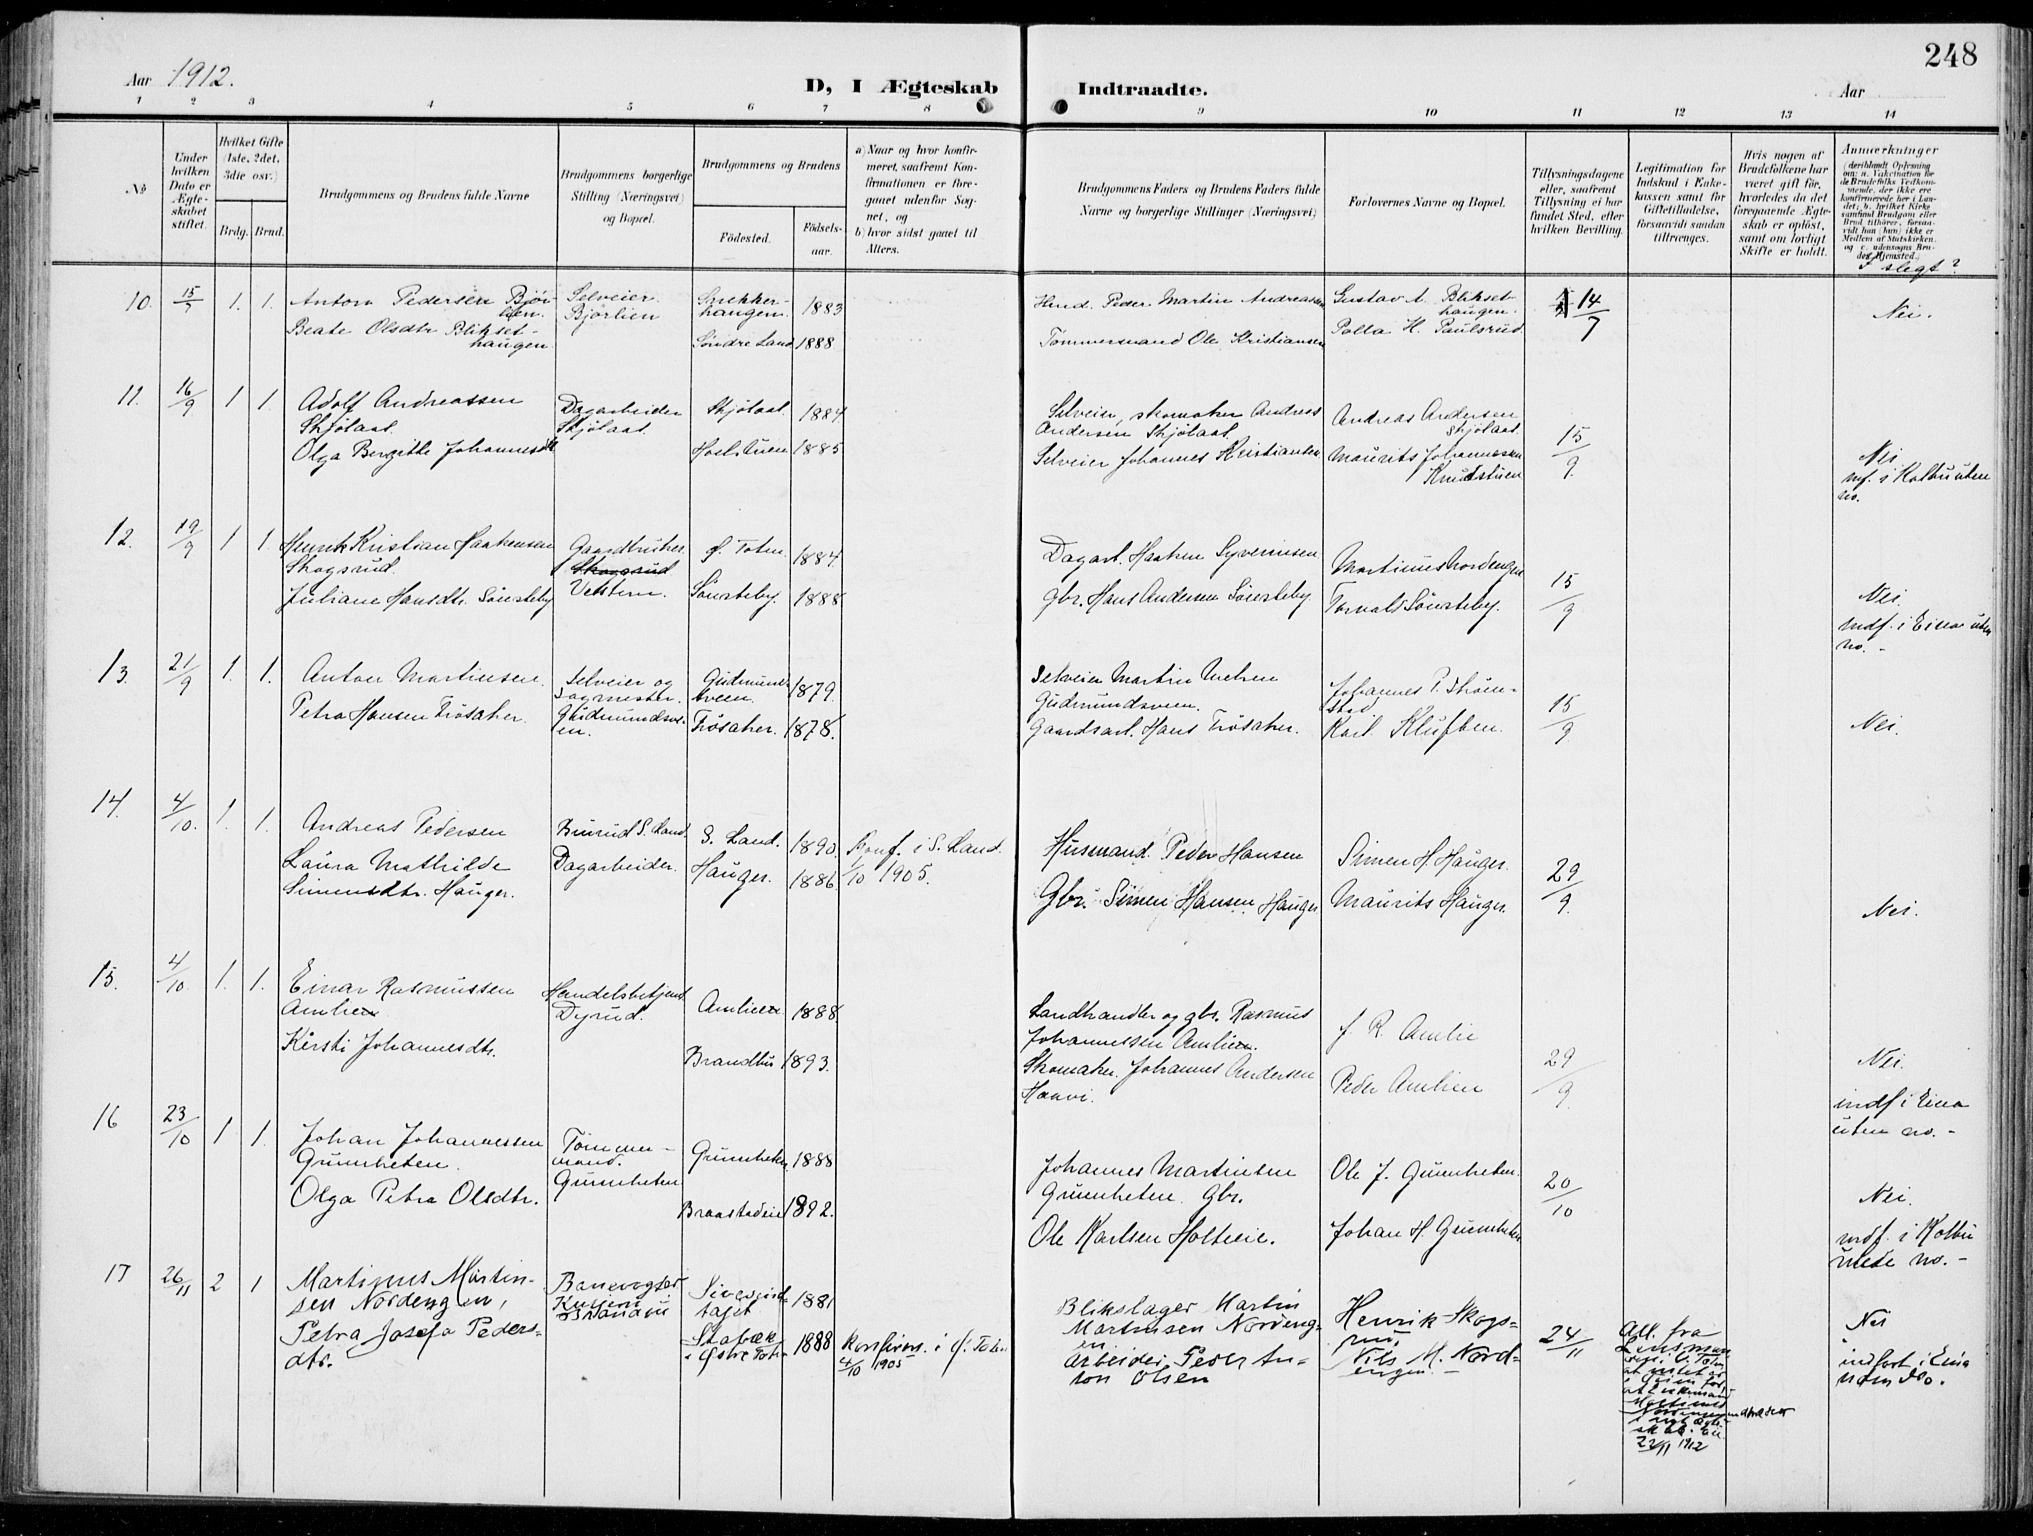 248
Aar 1912.
D, I Ægteskab Indtraadte.
Aar
1 2 3 4 5 6 7 8 9 10 11 12 13 14
No
Under hvilken Dato er Ægteskabet stiftet.
Hvilket Gifte (1ste, 2det, 3die osv.)
Brdg. Brud.
Brudgommens og Brudens fulde Navne
Brudgommens borgerlige Stilling (Næringsvei) og Bopæl.
Brudgommens og Brudens
Fødested.
Fødselsaar.
a) Naar og hvor konfirmeret, saafremt Konfirmationen er foregaaet udenfor Sognet, og
b) hvor sidst gaaet til Alters.
Brudgommens Faders og Brudens Faders fulde Navne og borgerlige Stillinger (Næringsvei)
Forlovernes Navne og Bopæl.
Tillysningsdagene eller, saafremt Tillysning ei har fundet Sted, efter hvilken Bevilling.
Legitimation for Indskud i Enkekassen samt for Giftetilladelse, forsaavidt saadan tiltrænges.
Hvis nogen af Brudefolkene har været gift før, hvorledes da det foregaaende Ægteskab er opløst, samt om lovligt Skifte er holdt.
Anmerkninger
(deriblandt Oplysning om: a. Vakcination for de Brudefolks Vedkommende, der ikke ere konfirmerede her i Landet; b. hvilket Kirkesamfund Brudgom eller Brud tilhører, forsaavidt han (hun) ikke er Medlem af Statskirken, og c. udensogns Brudes Hjemsted.)
I slegt?
10. 15/7 1. 1.
Anton Pedersen Bjørlien.
Beate Olsdtr. Bliksethaugen
Selveier
Bjørlien
Snekkerhaugen 1883
Søndre Land 1888
Husmd. Peder Martin Andreassen
Tømmermand Ole Kristiansen
Gustav A. Bliksethaugen.
Palla H. Paulsrud
14/7
Nei.
11. 16/9 1 1.
Adolf Andreassen
Skjølaas.
Olga Bergitte Johannesdtr
Dagarbeider
Skjølaas.
Skjølaas. 1884
1885
Selveier, skomaker Andreas
Andersen Skjølaas.
Selveier Johannes Kristiansen
Andreas Andersen
Skjølaas.
Maurits Johannessen
Knudstuen
15/9
Nei
indf. i Kolbu uten
no.
12. 19/9 1 1.
Henrik Kristian Haakensen
Skogsrud.
Juliane Hansdtr. Sønsteby
Gaardbruker
Skogsrud
Ø. Toten 1884
Sønsteby. 1888
Dagarb. Haaken Syversen
Gbr. Hans Andersen Sønsteby.
Martinius Nordengen
Torvald Sønsteby.
15/9
Nei.
indf. i Eina uten
no. -
13. 21/9 1. 1.
Anton Martinsen.
Petra Hansen Frøsaker.
Selveier og
sagmester.
Gudmundsveen.
Gudmundsveen 1879.
Frøsaker. 1878.
Selveier Martin
Gudmundsveen.
Gaardsarb. Hans Frøsaker.
Johannes P. Strømsted
Karl Kluften.
15/9
Nei.
14. 4/10. 1. 1.
Andreas Pedersen
Laura Mathilde
Simensdtr. Hauger.
S. Land.
Dagarbeider.
S. Land. 1890.
Hauger. 1886
Konf. i S. Land.
1/10 1905.
Husmand. Peder Hansen
Gbr. Simen Hansen Hauger
Simen H. Hauger.
Maurits Hauger.
29/9.
Nei.
15. 4/10 1. 1.
Einar Rasmussen
Amlien
Kirsti Johannesdtr.
Handelsbetjent
Dyrud.
Amlien 1888.
Brandbu 1893.
Landhandler og gbr. Rasmus
Johannessen Amlien.
Skomaker. Johannes Andersen
Haavi.
J. R. Amlie
Peder Amlien
29/9
Nei.
indf i Eina
uten no. -
16 23/10 1 1.
Johan Johannessen
Grønheten.
Olga Petra Olsdtr.
Tømmermand.
Grønheten
Grønheten. 1888
Braastadeie 1892.
Johannes Martinsen
Grønheten. Gbr.
Ole Karlsen Holteeie.
Ole J. Grønheten.
Johan H. Grønheten
20/10
Nei.
indf. i Kolbu
uten no. -
17 26/11 2 1
Martinus Martinsen Nordengen,
Petra Josefa Pedersdtr.
Banevogter
1881
Stabæk
i Østre Toten 1888
Konfirm. i Ø. Toten
4/10 1905
Blikslager Martin
Martinsen Nordengen
Arbeider Peder Anton Olsen
Henrik Skogsrud,
Nils M. Nordengen. -
24/11
Att. fra
Lensman
22/11 1912
Nei
indført i Eina
uten No.